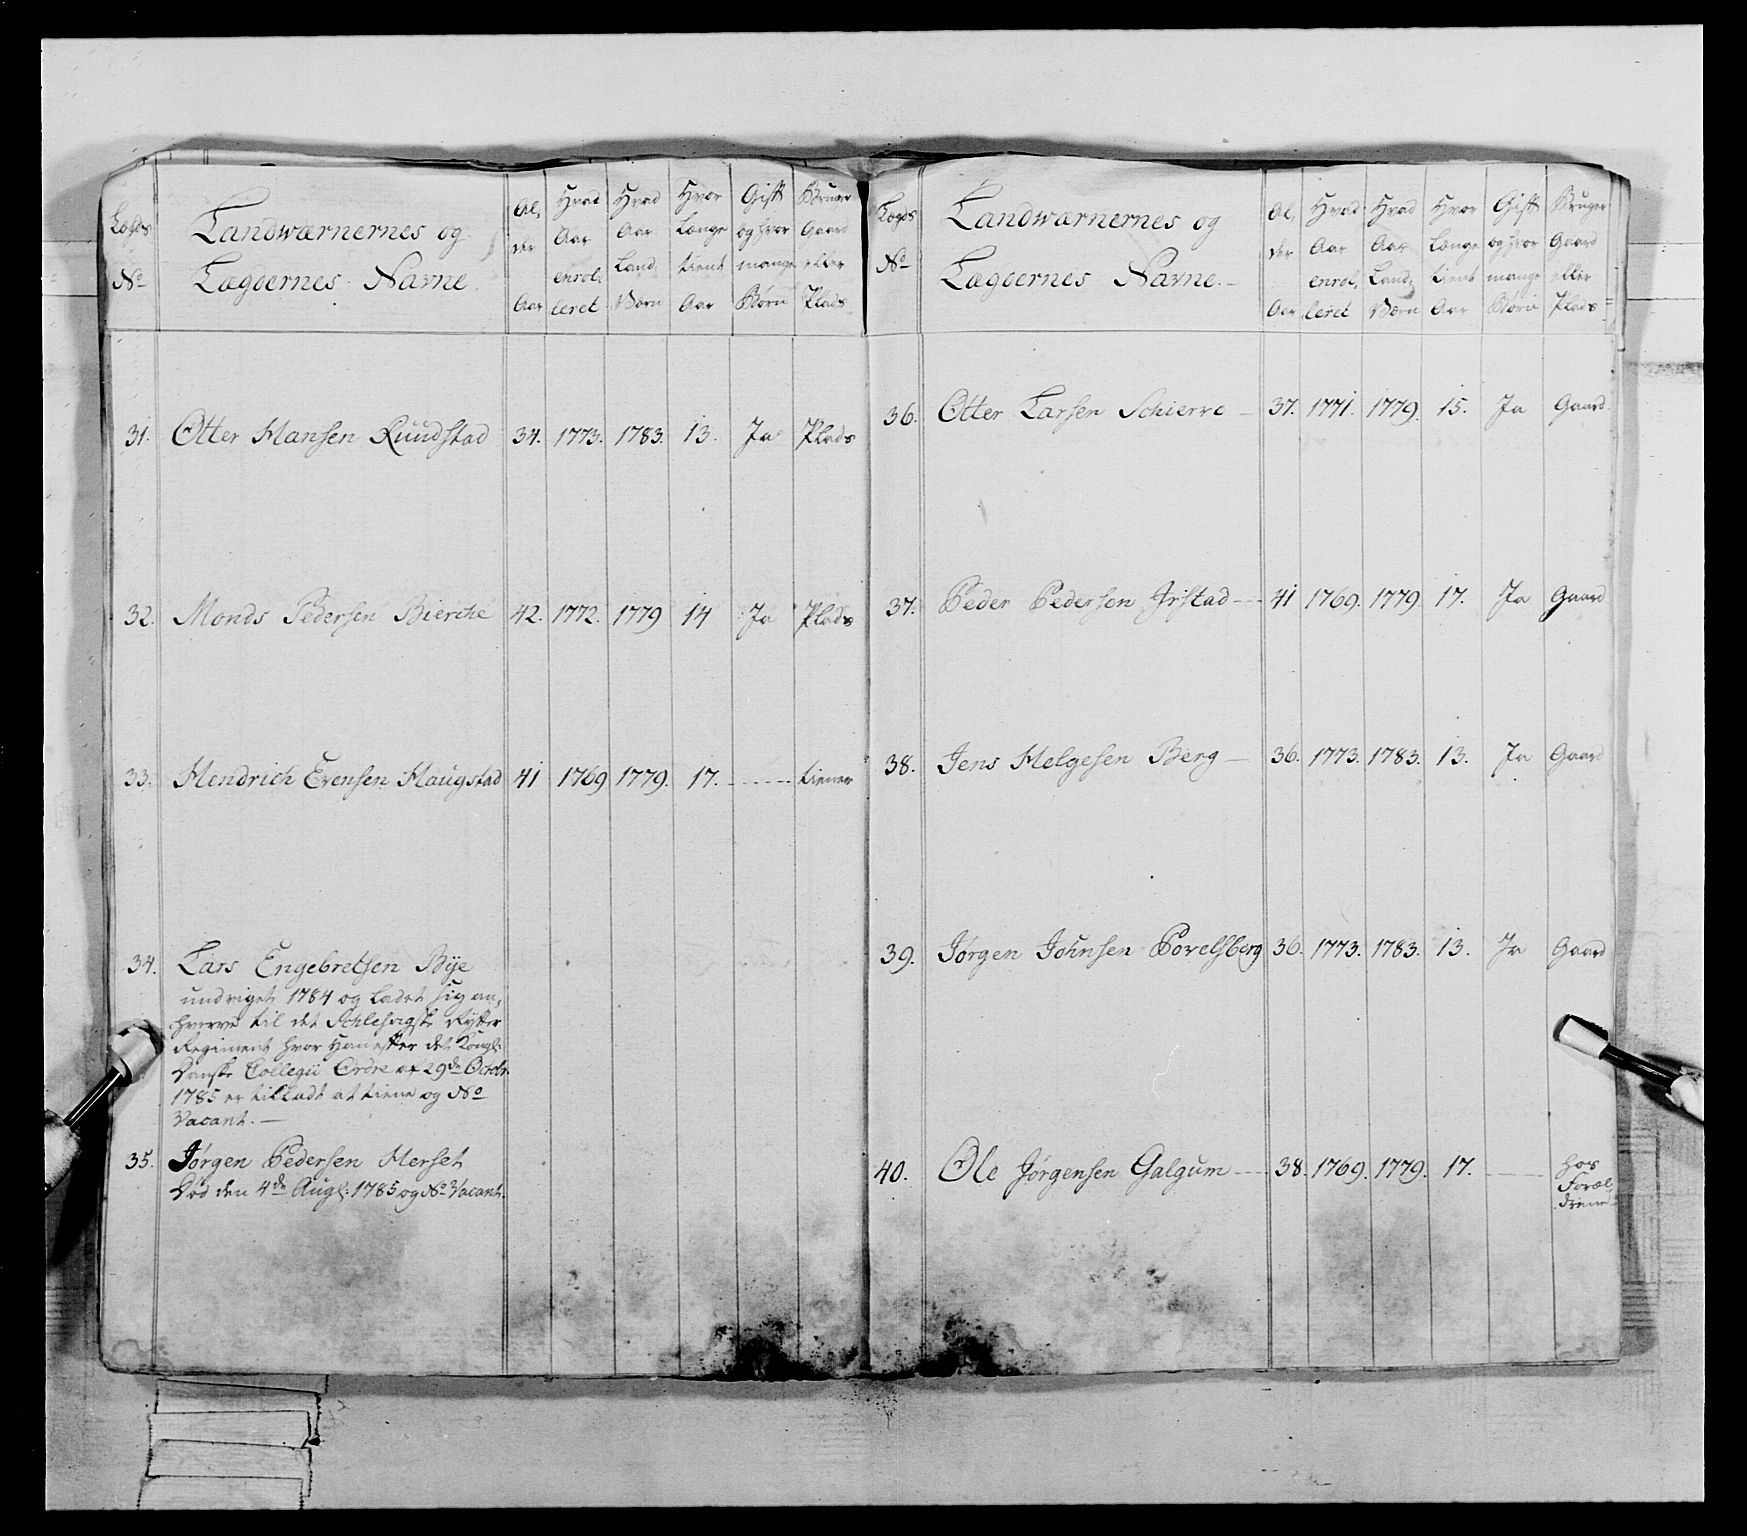 Lægds No
Landwærnernes og
Lægdernes Navne.
Al, der Aar
Hvad Aar enrol, leret
Hvad Aar Land, Wærn
Hvor Længe tient Aar
Gift og hvor mange Børn
Bruger Gaard eller Plads
31. Otter Hansen Ruudstad 34. 1773. 1783. 13. Ja Plads
32. Monds Pedersen Bierche 42. 1772. 1779 14 Ja Plads
33. Hendrich Evensen Haugstad 41 1769 1779. 17. ---- tiener
34. Lars Engebretsen Bye
undviget 1784 og ladet sig an,
hverve til det Schlesvigske Rytter
Regiment hvor Han efter det Kongl:
Danske Collegii Ordre af 29de Octobr
1785 er tilladt at tiene og No
Vacant. —
35. Jørgen Pedersen Herset
Død den 4de Augl: 1785 og No Vacant.
Lægds No
Landwærnernes og
Lægdernes Navne. —
Al, der Aar
Hvad Aar enrol, leret
Hvad Aar Land, Wærn
Hvor Længe tient Aar
Gift og hvor mange Børn
Bruger Gaard eller Plads
36. Otter Larsen Schierve — 37. 1771. 1779. 15. Ja Gaard.
37. Peder Pedersen Irstad --- 41 1769. 1779. 17. Ja Gaard
38. Jens Helgesen Berg — 36. 1773. 1783. 13. Ja Gaard
39. Jørgen Johnsen Povelsberg 36. 1773. 1783. 13. Ja Gaard
40. Ole Jørgensen Galgum --- 38. 1769. 1779. 17. ---- hos
Foræl,
drene